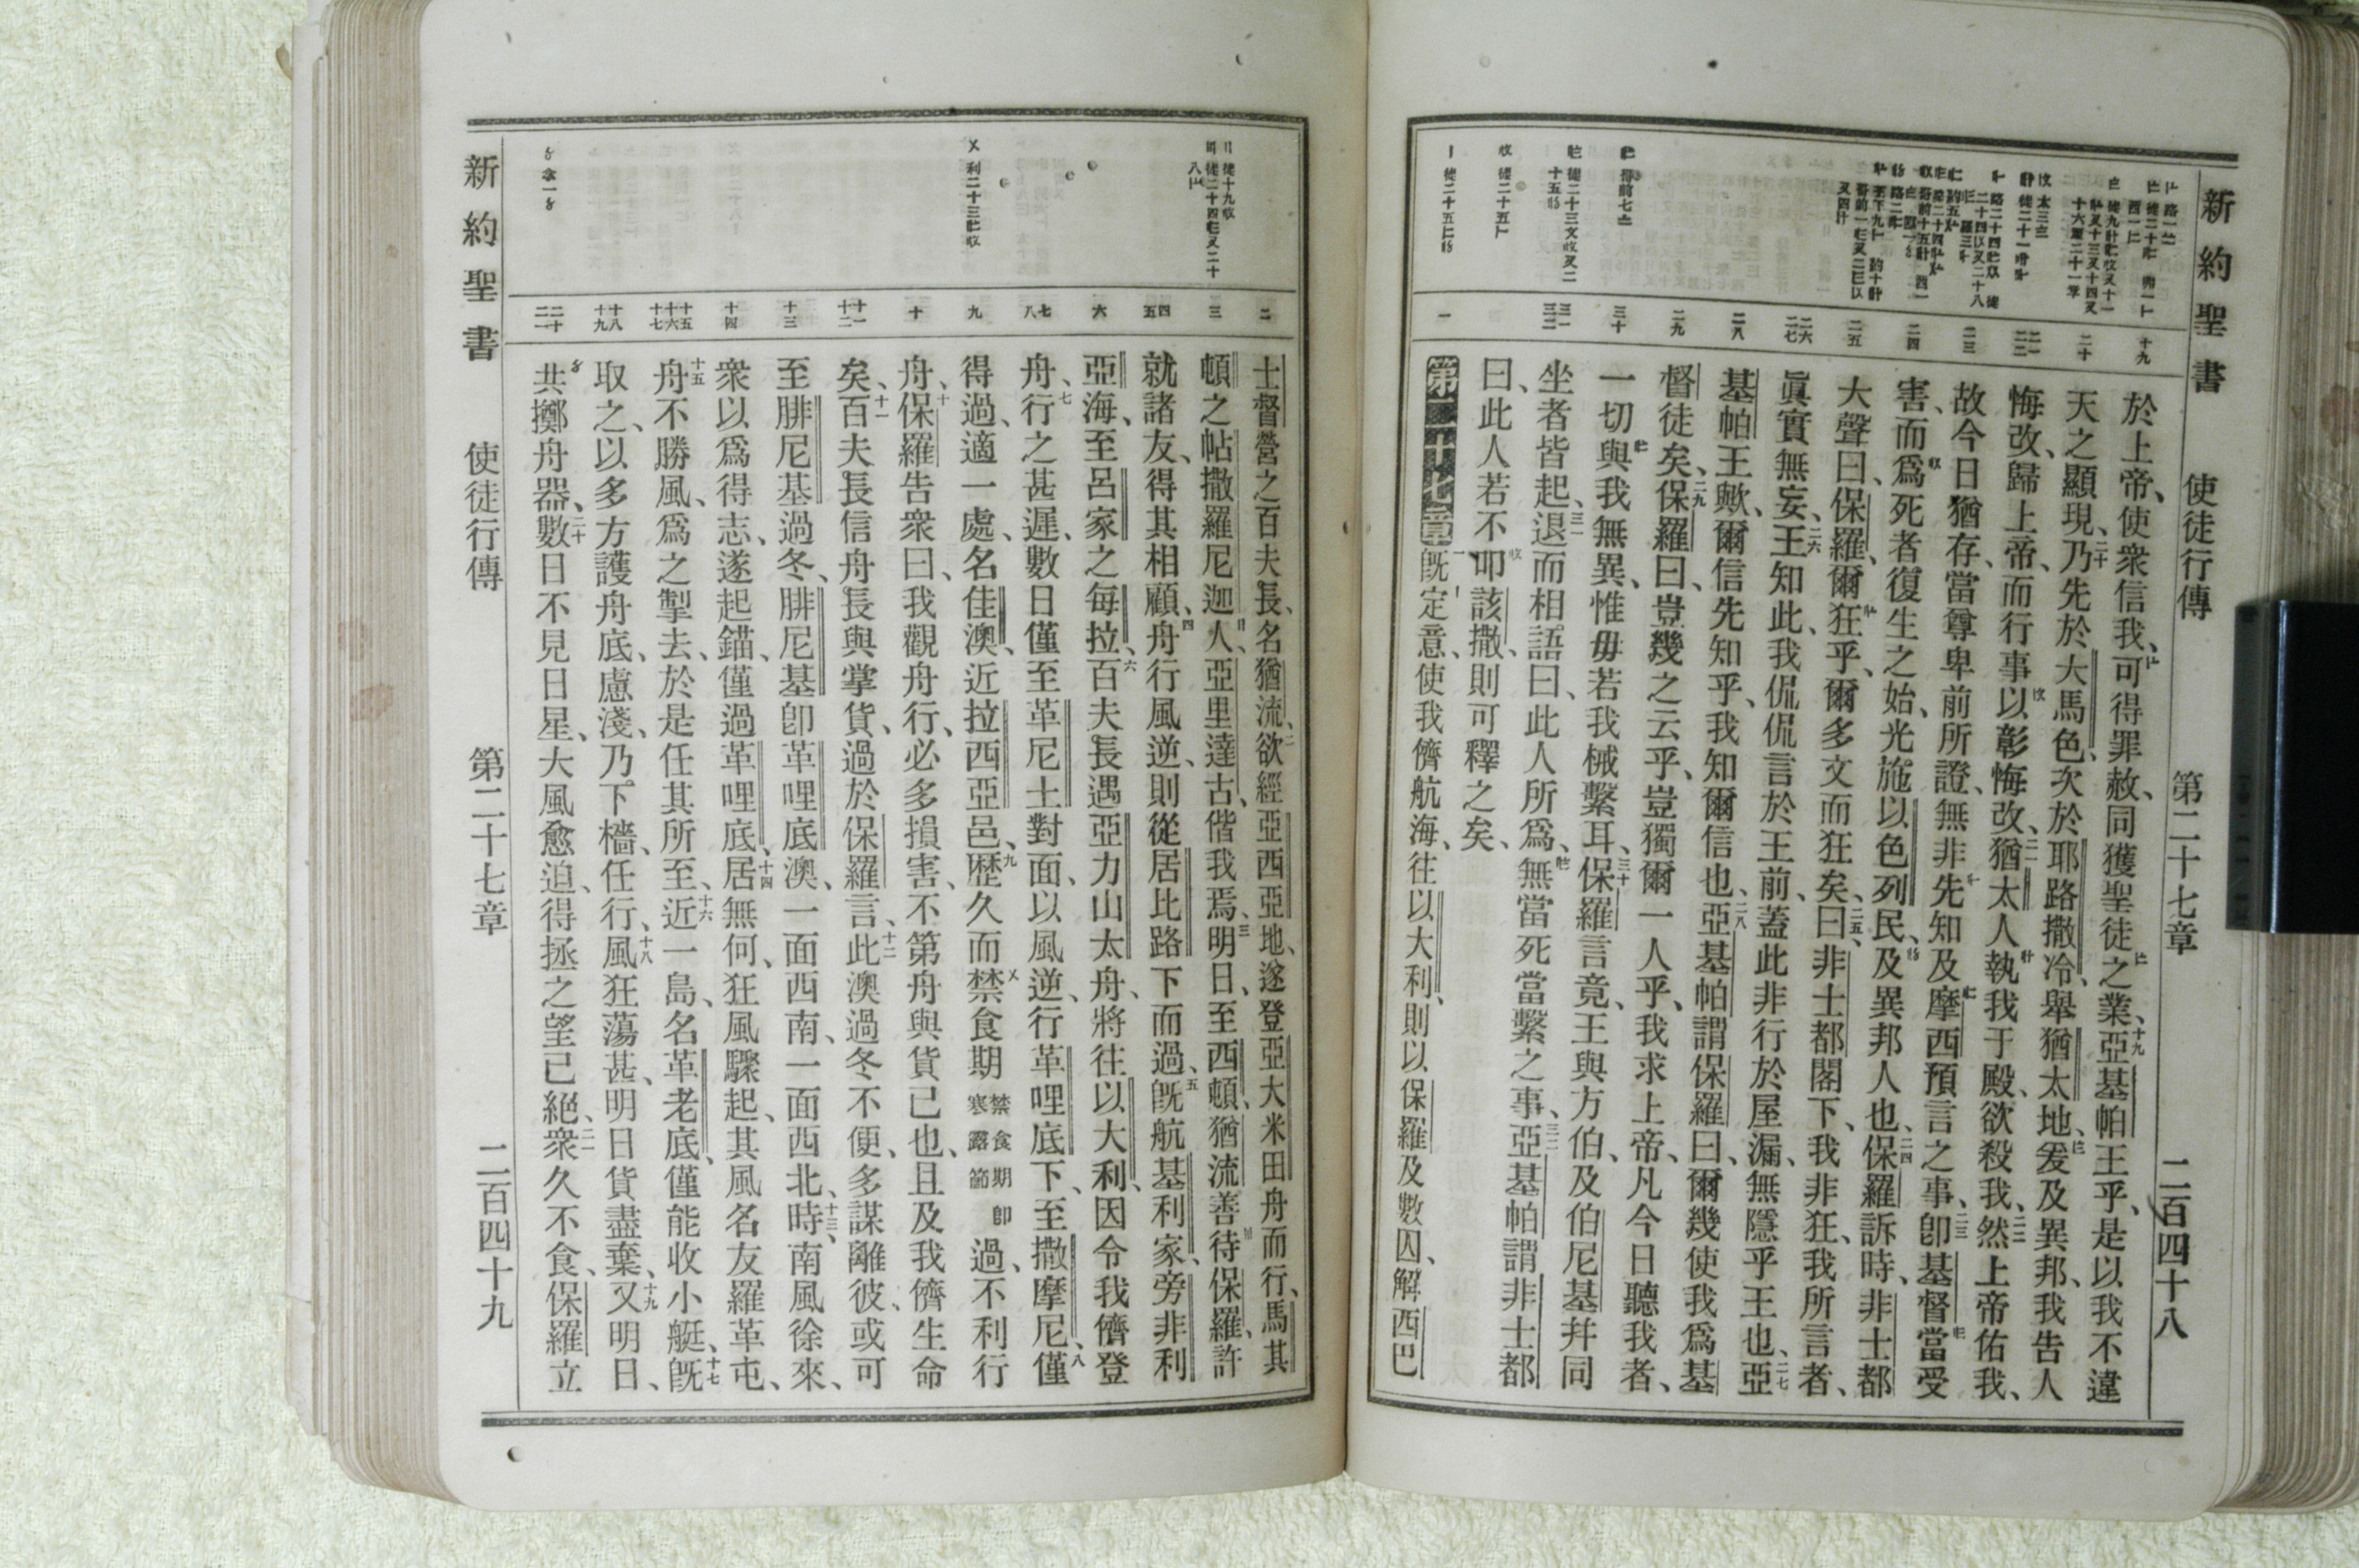 新約聖書 使徒行傳 第二十七章 二百四十八
十九
二十
二一
二二
二三
二四
二五
二六
二七
二八
二九
三十
三一
三二
一
於上帝、使衆信我、可得罪赦、同獲聖徒之業、十九亞基帕王乎、是以我不違
天之顯現、二十乃先於大馬色、次於耶路撒冷、舉猶太地、爰及異邦、我告人
悔改、歸上帝、而行事以彰悔改、二一猶太人執我于殿、欲殺我、二二然上帝佑我、
故今日猶存、當尊卑前所證、無非先知及摩西預言之事、二三卽基督當受
害、而爲死者復生之始、光施以色列民、及異邦人也、二四保羅訴時、非士都
大聲曰、保羅、爾狂乎、爾多文而狂矣、二五曰、非士都閣下、我非狂、我所言者、
眞實無妄、二六王知此、我侃侃言於王前、蓋此非行於屋漏、無隱乎王也、二七亞
基帕王歟、爾信先知乎、我知爾信也、二八亞基帕謂保羅曰、爾幾使我爲基
督徒矣、二九保羅曰、豈幾之云乎、豈獨爾一人乎、我求上帝、凡今日聽我者、
一切與我無異、惟毋若我械繫耳、三十保羅言竟、王與方伯、及伯尼基幷同
坐者皆起、三一退而相語曰、此人所爲、無當死當繫之事、三二亞基帕謂非士都
曰、此人若不叩該撒、則可釋之矣、
第二十七章 一旣定意、使我儕航海、往以大利、則以保羅及數囚、解西巴
二
三
四
五
六
七
八
九
十
十一
十二
十三
十四
十五
十六
十七
十八
十九
二十
二一
士督營之百夫長、名猶流、二欲經亞西亞地、遂登亞大米田舟而行、馬其
頓之帖撒羅尼迦人、亞里達古、偕我焉、三明日、至西頓、猶流善待保羅、許
就諸友、得其相顧、四舟行風逆、則從居比路下而過、五旣航基利家、旁非利
亞海、至呂家之每拉、六百夫長遇亞力山太舟、將往以大利、因令我儕登
舟、七行之甚遲、數日僅至革尼土對面、以風逆、行革哩底下、至撒摩尼、八僅
得過、適一處、名佳澳、近拉西亞邑、九歷久而禁食期禁食期卽寒露節過、不利行
舟、十保羅告衆曰、我觀舟行、必多損害、不第舟與貨已也、且及我儕生命
矣、十一百夫長信舟長與掌貨、過於保羅言、十二此澳過冬不便、多謀離彼、或可
至腓尼基過冬、腓尼基卽革哩底澳、一面西南、一面西北、十三時、南風徐來、
衆以爲得志、遂起錨、僅過革哩底、十四居無何、狂風驟起、其風名友羅革屯、
十五舟不勝風、爲之掣去、於是任其所至、十六近一島、名革老底、僅能收小艇、十七旣
取之、以多方護舟底、慮淺、乃下檣、任行、十八風狂蕩甚、明日貨盡棄、十九又明日、
共擲舟器、二十數日不見日星、大風愈迫、得拯之望已絕、二一衆久不食、保羅立
新約聖書 使徒行傳 第二十七章 二百四十九